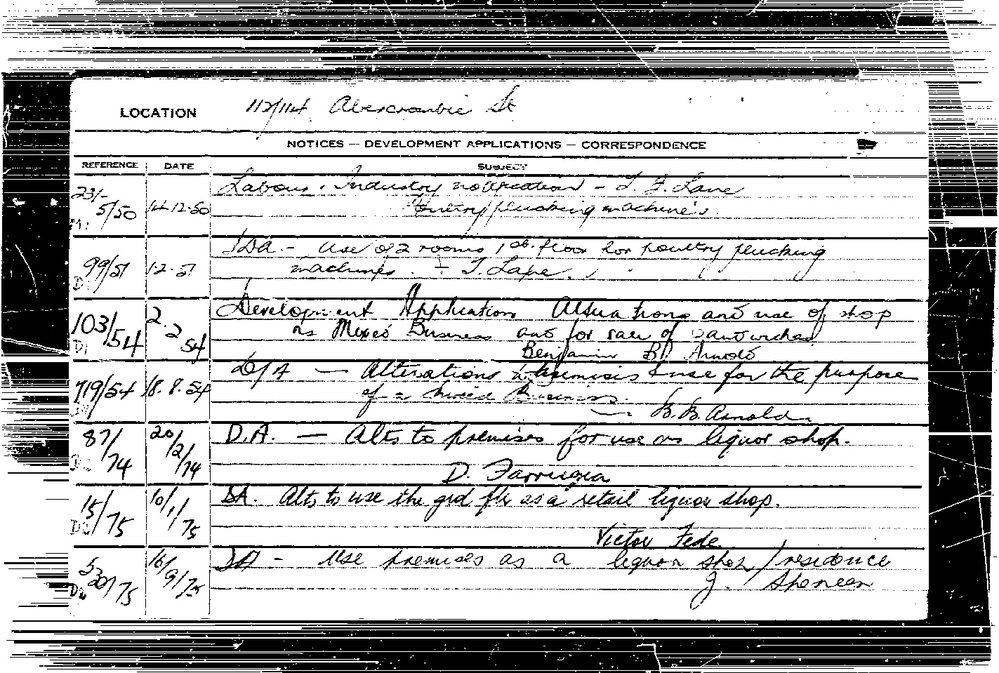 LOCATION 112/114 Abercrombie St
NOTICES — DEVELOPMENT APPLICATIONS — CORRESPONDENCE
REFERENCE DATE SUBJECT
23/- 5/50 14.12.50 Labour & Industry notification - T. J. Lane
Poultry plucking machines.
99/51 1.2.51 DA. - Use of 2 rooms 1st floor for poultry plucking
machines. - T. Lane.
103/54 2.2.54 Development Application Alterations and use of shop
as Mixed Business and for sale of sandwiches
Benjamin B. Arnold
719/54 18.8.54 D/A — Alterations premises & use for the purpose
of a mixed Business.
B. B. Arnold.
87/74 20/2/74 D.A. — Alts to premises for use as liquor shop.
D. Farrugia
15/75 10/1/75 DA. Alts to use the grd flr as a retail liquor shop.
Victor Fede
530/75 16/9/75 DA - Use premises as a liquor shop/residence
J. Spencer